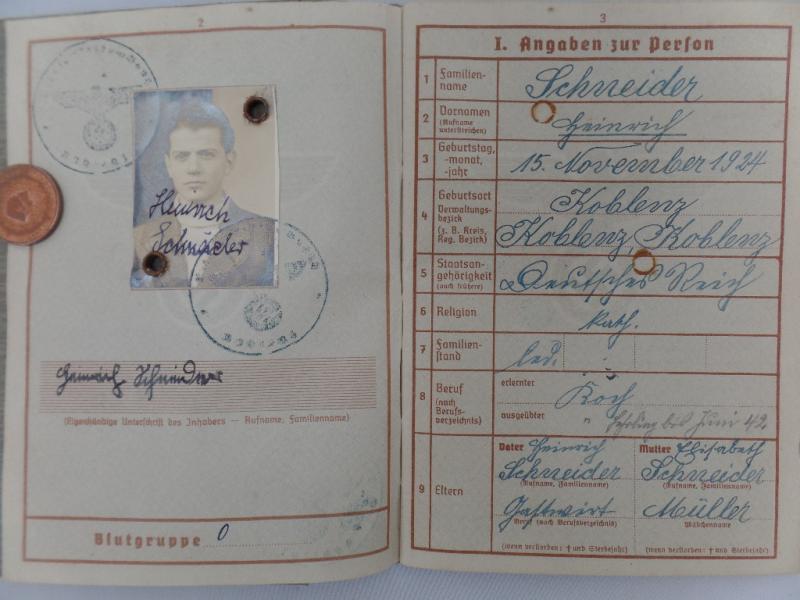 2
Heinrich
Schneider
Heinrich Schneider
(Eigenhändige Unterschrift des Inhabers — Rufname, Familienname)
Blutgruppe 0
3
I. Angaben zur Person
1 Familienname Schneider
2 Vornamen (Rufname unterstreichen) Heinrich
3 Geburtstag, -monat, -jahr 15. November 1924
4 Geburtsort Koblenz
Verwaltungsbezirk (z. B. Kreis, Reg. Bezirk) Koblenz, Koblenz
5 Staatsangehörigkeit (auch frühere) Deutsches Reich
6 Religion kath.
7 Familienstand led.
8 Beruf (nach Berufsverzeichnis) erlernter Koch
ausgeübter " Lehrling bis Juni 42.
9 Eltern
Vater Heinrich
Schneider
(Rufname, Familienname)
Gastwirt
Beruf (nach Berufsverzeichnis)
(wenn verstorben: † und Sterbejahr)
Mutter Elisabeth
Schneider
(Rufname, Familienname)
Müller
Mädchenname
(wenn verstorben: † und Sterbejahr)